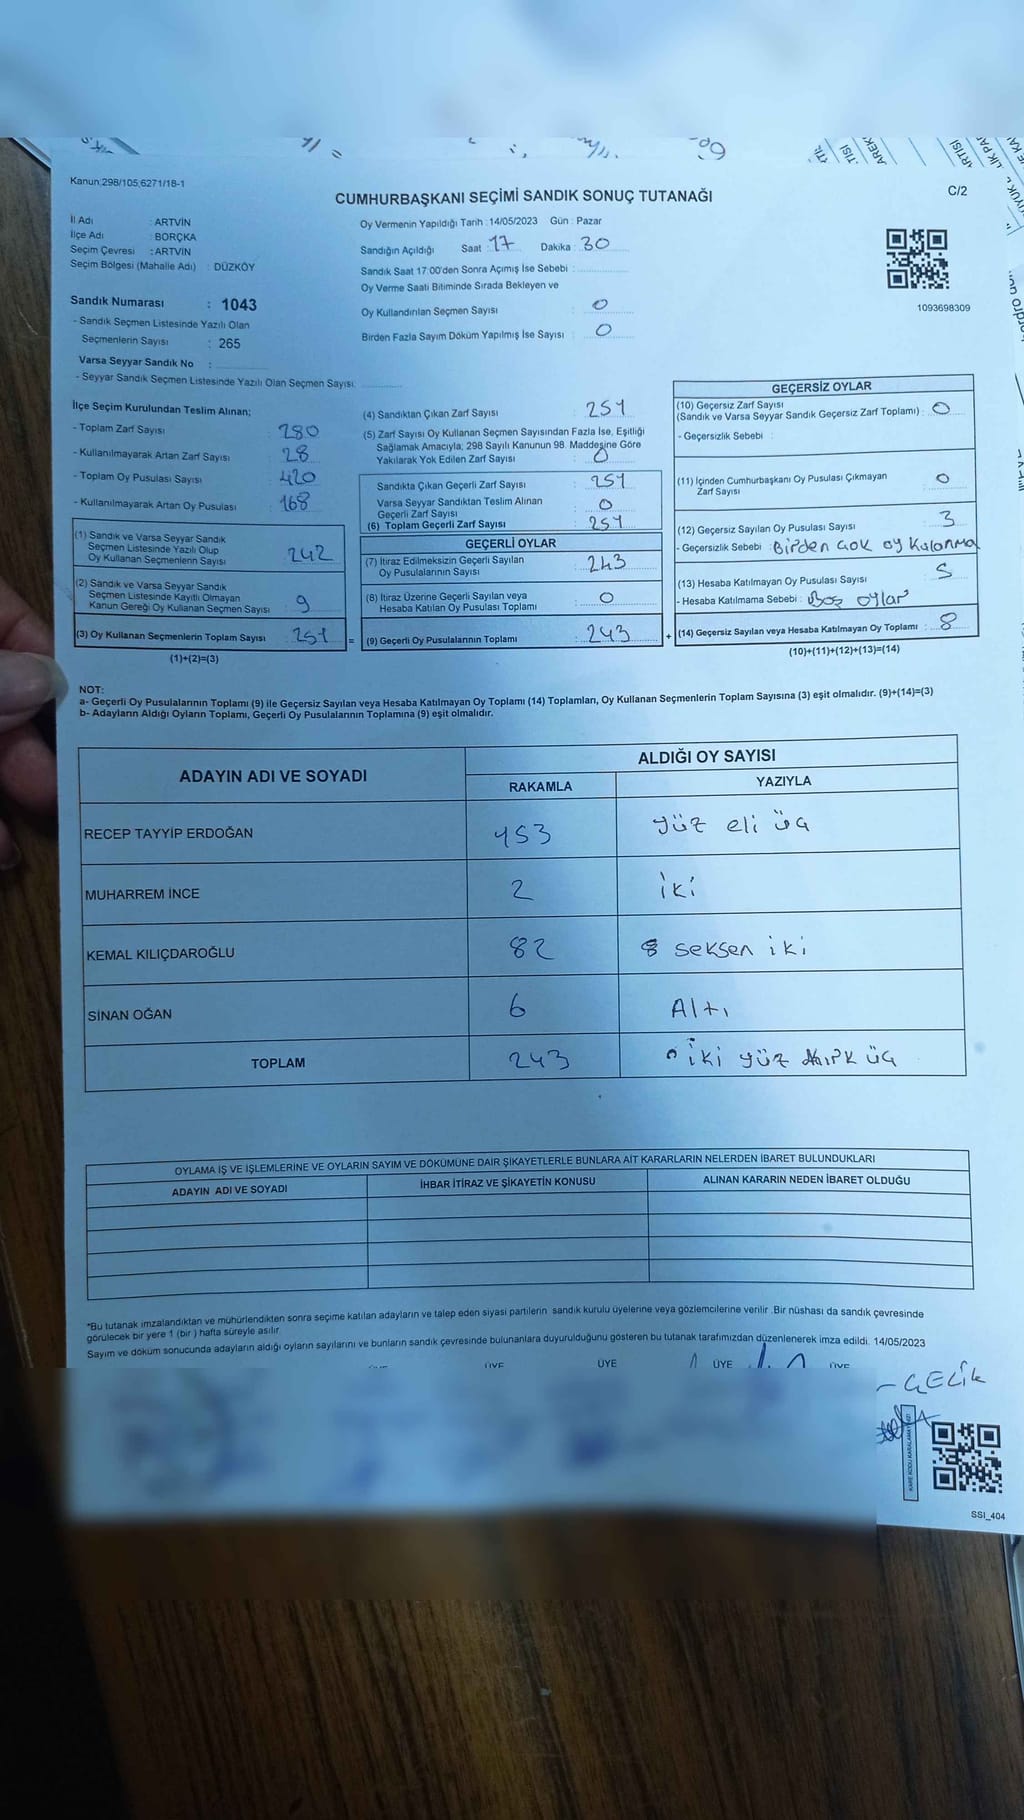 Kanun:298/105;6271/18-1
CUMHURBAŞKANI SEÇİMİ SANDIK SONUÇ TUTANAĞI
C/2
İl Adı : ARTVİN
İlçe Adı : BORÇKA
Seçim Çevresi : ARTVİN
Seçim Bölgesi (Mahalle Adı) : DÜZKÖY
Oy Vermenin Yapıldığı Tarih : 14/05/2023 Gün : Pazar
Sandığın Açıldığı Saat : 17 Dakika : 30
Sandık Saat 17:00'den Sonra Açımış İse Sebebi :
Oy Verme Saati Bitiminde Sırada Bekleyen ve
Oy Kullandırılan Seçmen Sayısı : 0
Birden Fazla Sayım Döküm Yapılmış İse Sayısı : 0
1093698309
Sandık Numarası : 1043
- Sandık Seçmen Listesinde Yazılı Olan
Seçmenlerin Sayısı : 265
Varsa Seyyar Sandık No :
- Seyyar Sandık Seçmen Listesinde Yazılı Olan Seçmen Sayısı:
İlçe Seçim Kurulundan Teslim Alınan;
- Toplam Zarf Sayısı : 280
- Kullanılmayarak Artan Zarf Sayısı : 28
- Toplam Oy Pusulası Sayısı : 420
- Kullanılmayarak Artan Oy Pusulası : 168
(1) Sandık ve Varsa Seyyar Sandık
Seçmen Listesinde Yazılı Olup
Oy Kullanan Seçmenlerin Sayısı : 242
(2) Sandık ve Varsa Seyyar Sandık
Seçmen Listesinde Kayıtlı Olmayan
Kanun Gereği Oy Kullanan Seçmen Sayısı : 9
(3) Oy Kullanan Seçmenlerin Toplam Sayısı : 251 =
(1)+(2)=(3)
(4) Sandıktan Çıkan Zarf Sayısı : 251
(5) Zarf Sayısı Oy Kullanan Seçmen Sayısından Fazla İse, Eşitliği
Sağlamak Amacıyla; 298 Sayılı Kanunun 98. Maddesine Göre
Yakılarak Yok Edilen Zarf Sayısı : 0
Sandıkta Çıkan Geçerli Zarf Sayısı : 251
Varsa Seyyar Sandıktan Teslim Alınan
Geçerli Zarf Sayısı : 0
(6) Toplam Geçerli Zarf Sayısı : 251
GEÇERLİ OYLAR
(7) İtiraz Edilmeksizin Geçerli Sayılan
Oy Pusulalarının Sayısı : 243
(8) İtiraz Üzerine Geçerli Sayılan veya
Hesaba Katılan Oy Pusulası Toplamı : 0
(9) Geçerli Oy Pusulalarının Toplamı : 243 +
GEÇERSİZ OYLAR
(10) Geçersiz Zarf Sayısı
(Sandık ve Varsa Seyyar Sandık Geçersiz Zarf Toplamı) : 0
- Geçersizlik Sebebi :
(11) İçinden Cumhurbaşkanı Oy Pusulası Çıkmayan
Zarf Sayısı : 0
(12) Geçersiz Sayılan Oy Pusulası Sayısı : 3
- Geçersizlik Sebebi : Birden çok oy kulanma
(13) Hesaba Katılmayan Oy Pusulası Sayısı : 5
- Hesaba Katılmama Sebebi : Boş oylar
(14) Geçersiz Sayılan veya Hesaba Katılmayan Oy Toplamı : 8
(10)+(11)+(12)+(13)=(14)
NOT:
a- Geçerli Oy Pusulalarının Toplamı (9) ile Geçersiz Sayılan veya Hesaba Katılmayan Oy Toplamı (14) Toplamları, Oy Kullanan Seçmenlerin Toplam Sayısına (3) eşit olmalıdır. (9)+(14)=(3)
b- Adayların Aldığı Oyların Toplamı, Geçerli Oy Pusulalarının Toplamına (9) eşit olmalıdır.
ADAYIN ADI VE SOYADI
ALDIĞI OY SAYISI
RAKAMLA YAZIYLA
RECEP TAYYİP ERDOĞAN 153 yüz eli üç
MUHARREM İNCE 2 iki
KEMAL KILIÇDAROĞLU 82 seksen iki
SİNAN OĞAN 6 Altı
TOPLAM 243 iki yüz kırk üç
OYLAMA İŞ VE İŞLEMLERİNE VE OYLARIN SAYIM VE DÖKÜMÜNE DAİR ŞİKAYETLERLE BUNLARA AİT KARARLARIN NELERDEN İBARET BULUNDUKLARI
ADAYIN ADI VE SOYADI İHBAR İTİRAZ VE ŞİKAYETİN KONUSU ALINAN KARARIN NEDEN İBARET OLDUĞU
*Bu tutanak imzalandıktan ve mühürlendikten sonra seçime katılan adayların ve talep eden siyasi partilerin sandık kurulu üyelerine veya gözlemcilerine verilir .Bir nüshası da sandık çevresinde
görülecek bir yere 1 (bir ) hafta süreyle asılır.
Sayım ve döküm sonucunda adayların aldığı oyların sayılarını ve bunların sandık çevresinde bulunanlara duyurulduğunu gösteren bu tutanak tarafımızdan düzenlenerek imza edildi. 14/05/2023
ÜYE ÜYE ÜYE ÜYE
ÇELİK
SSI_404